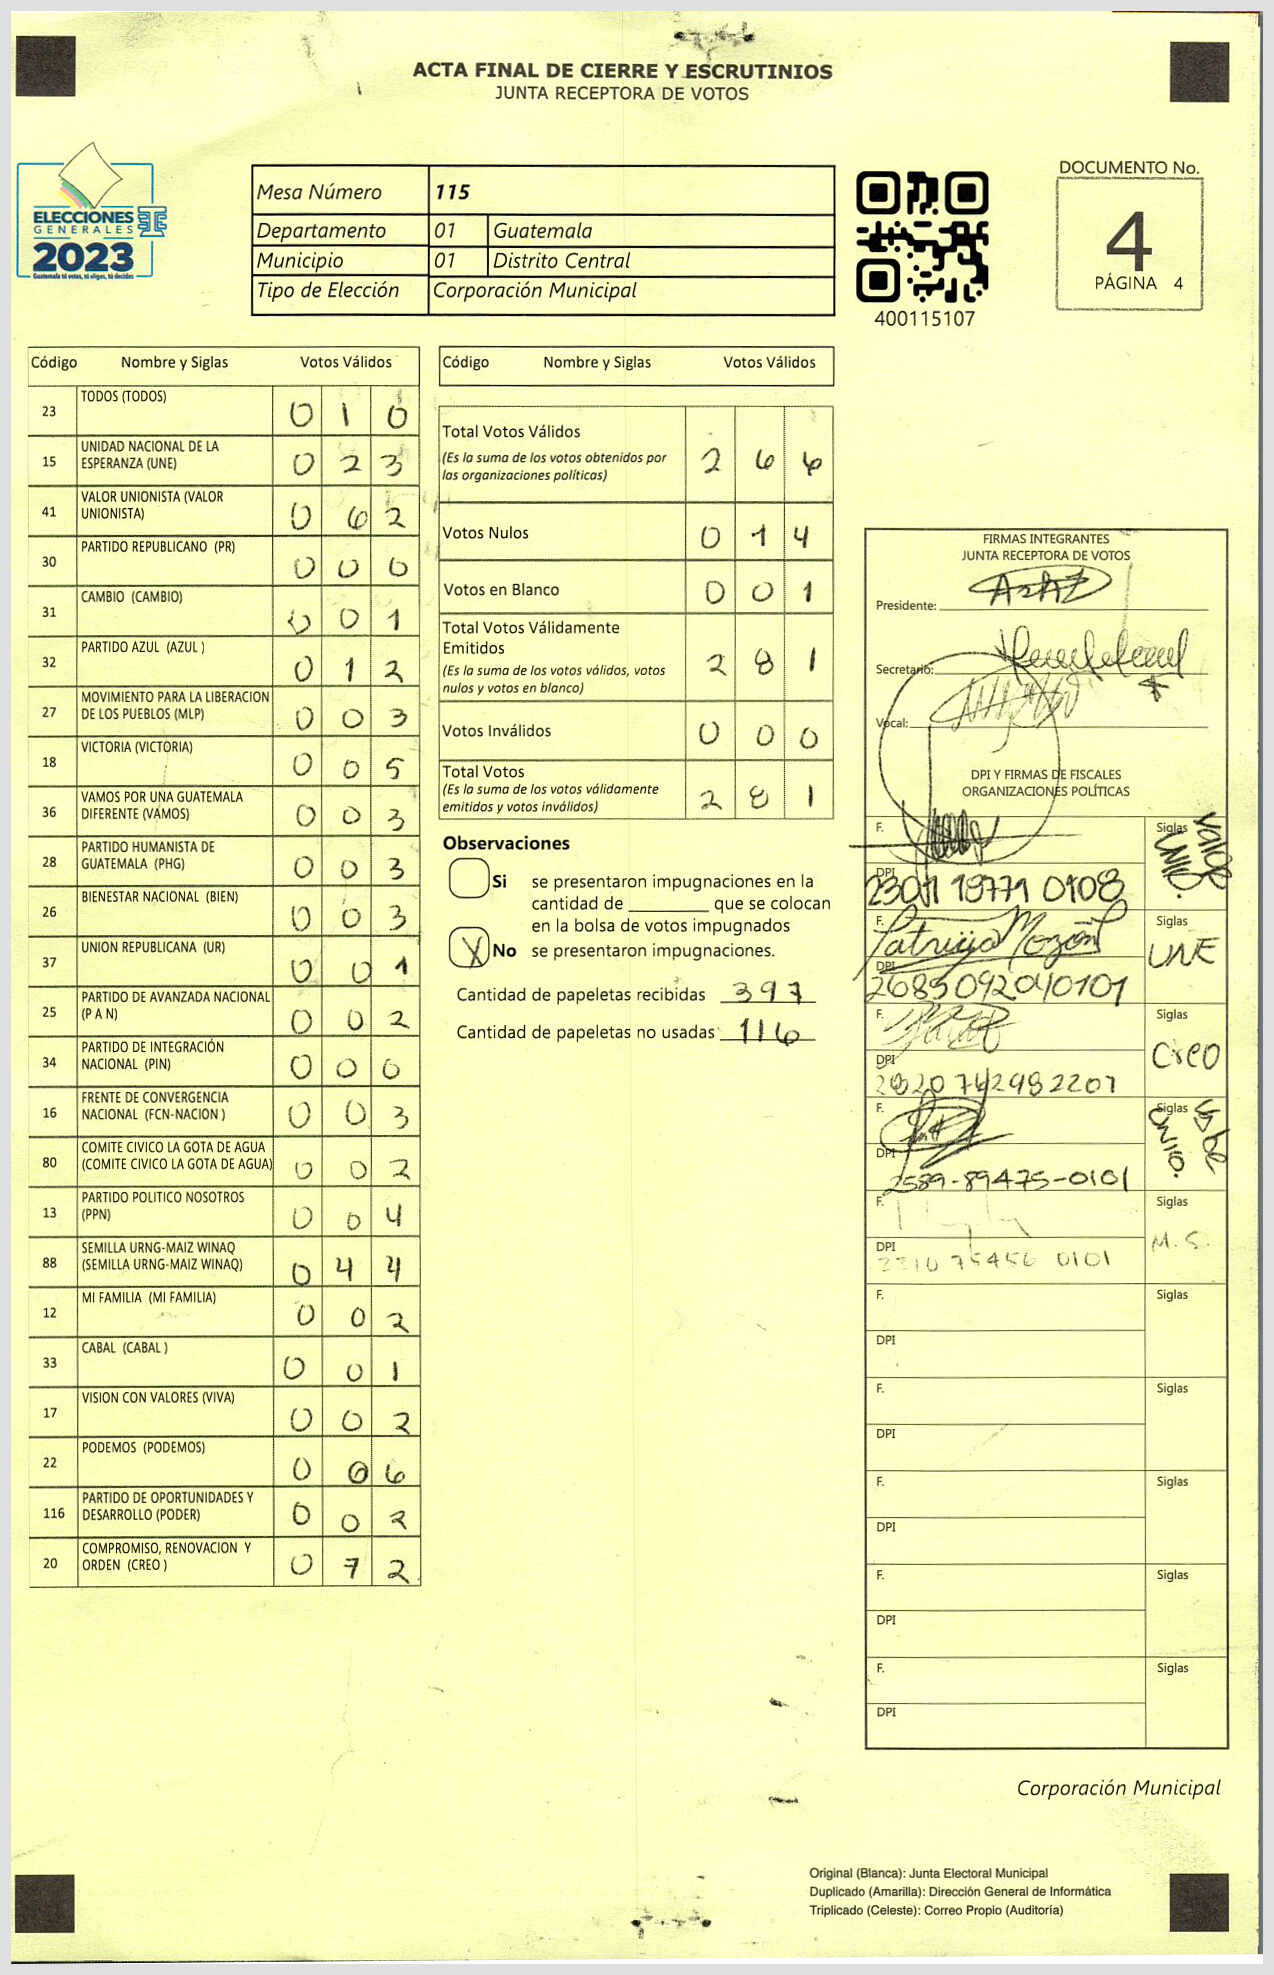 ACTA FINAL DE CIERRE Y ESCRUTINIOS
JUNTA RECEPTORA DE VOTOS
ELECCIONES
GENERALES
2023
Guatemala tú votas, tú eliges, tú decides
Mesa Número 115
Departamento 01 Guatemala
Municipio 01 Distrito Central
Tipo de Elección Corporación Municipal
400115107
DOCUMENTO No.
4
PÁGINA 4
Código Nombre y Siglas Votos Válidos
23 TODOS (TODOS) 0 1 0
15 UNIDAD NACIONAL DE LA ESPERANZA (UNE) 0 2 3
41 VALOR UNIONISTA (VALOR UNIONISTA) 0 6 2
30 PARTIDO REPUBLICANO (PR) 0 0 0
31 CAMBIO (CAMBIO) 0 0 1
32 PARTIDO AZUL (AZUL ) 0 1 2
27 MOVIMIENTO PARA LA LIBERACION DE LOS PUEBLOS (MLP) 0 0 3
18 VICTORIA (VICTORIA) 0 0 5
36 VAMOS POR UNA GUATEMALA DIFERENTE (VAMOS) 0 0 3
28 PARTIDO HUMANISTA DE GUATEMALA (PHG) 0 0 3
26 BIENESTAR NACIONAL (BIEN) 0 0 3
37 UNION REPUBLICANA (UR) 0 0 1
25 PARTIDO DE AVANZADA NACIONAL (P A N) 0 0 2
34 PARTIDO DE INTEGRACIÓN NACIONAL (PIN) 0 0 0
16 FRENTE DE CONVERGENCIA NACIONAL (FCN-NACION ) 0 0 3
80 COMITE CIVICO LA GOTA DE AGUA (COMITE CIVICO LA GOTA DE AGUA) 0 0 2
13 PARTIDO POLITICO NOSOTROS (PPN) 0 0 4
88 SEMILLA URNG-MAIZ WINAQ (SEMILLA URNG-MAIZ WINAQ) 0 4 4
12 MI FAMILIA (MI FAMILIA) 0 0 2
33 CABAL (CABAL ) 0 0 1
17 VISION CON VALORES (VIVA) 0 0 2
22 PODEMOS (PODEMOS) 0 0 6
116 PARTIDO DE OPORTUNIDADES Y DESARROLLO (PODER) 0 0 2
20 COMPROMISO, RENOVACION Y ORDEN (CREO ) 0 7 2
Código Nombre y Siglas Votos Válidos
Total Votos Válidos 2 6 6
(Es la suma de los votos obtenidos por
las organizaciones políticas)
Votos Nulos 0 1 4
Votos en Blanco 0 0 1
Total Votos Válidamente
Emitidos 2 8 1
(Es la suma de los votos válidos, votos
nulos y votos en blanco)
Votos Inválidos 0 0 0
Total Votos 2 8 1
(Es la suma de los votos válidamente
emitidos y votos inválidos)
Observaciones
Si se presentaron impugnaciones en la
cantidad de ________ que se colocan
en la bolsa de votos impugnados
X No se presentaron impugnaciones.
Cantidad de papeletas recibidas 397
Cantidad de papeletas no usadas 116
FIRMAS INTEGRANTES
JUNTA RECEPTORA DE VOTOS
Presidente:
Secretario:
Vocal:
DPI Y FIRMAS DE FISCALES
ORGANIZACIONES POLÍTICAS
F. Siglas Valor Unio.
DPI 2301 18771 0108
F. Patricia Mozón Siglas UNE
DPI 2685092040101
F. Siglas Creo
DPI 2820742982201
F. Siglas
DPI 2589-89475-0101
F. Siglas M. S.
DPI 2310 75456 0101
F. Siglas
DPI
F. Siglas
DPI
F. Siglas
DPI
F. Siglas
DPI
F. Siglas
DPI
Corporación Municipal
Original (Blanca): Junta Electoral Municipal
Duplicado (Amarilla): Dirección General de Informática
Triplicado (Celeste): Correo Propio (Auditoría)